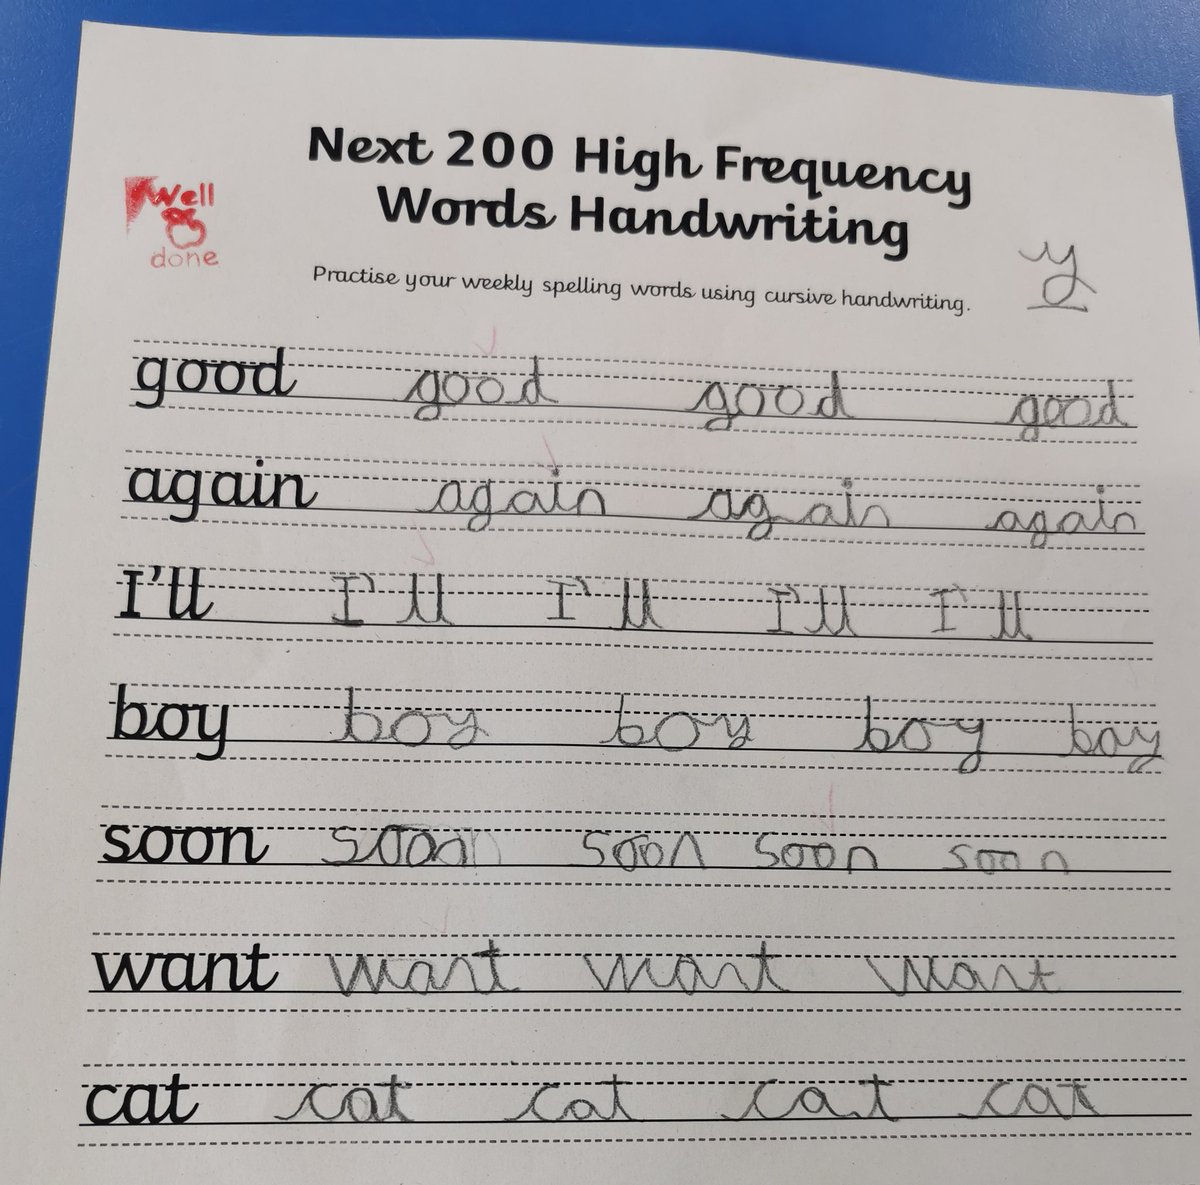 Next 200 High Frequency
Words Handwriting
Well
done
y
Practise your weekly spelling words using cursive handwriting.
good good good good
again again again again
I'll I'll I'll I'll I'll
boy boy boy boy boy
soon soon soon soon soon
want want want want
cat cat cat cat cat